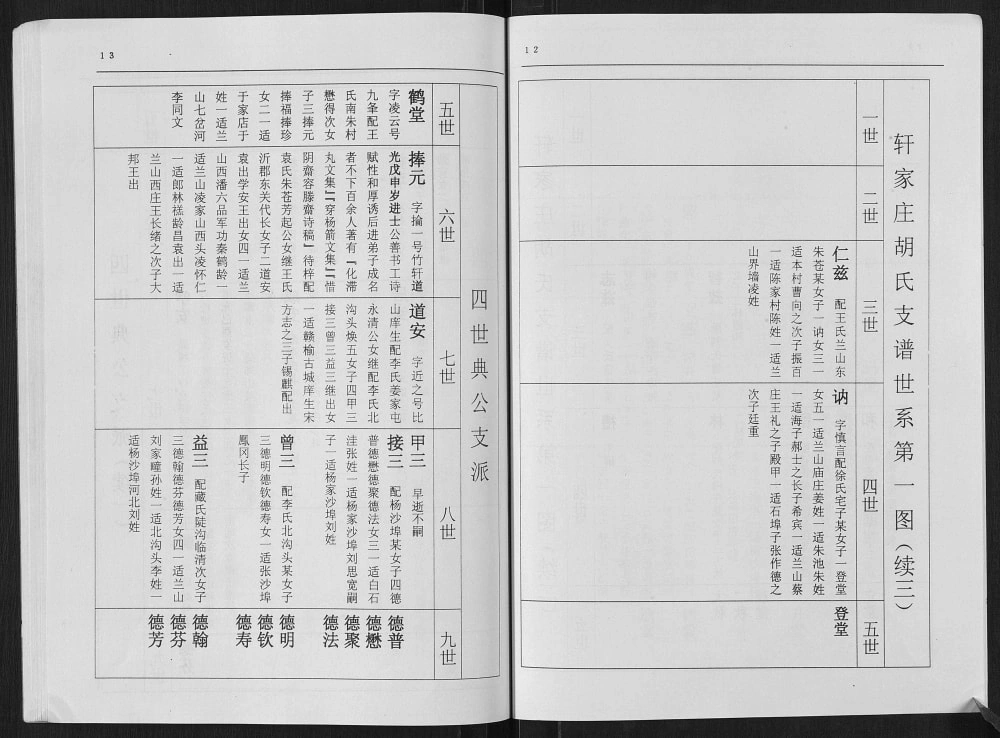 12
轩家庄胡氏支谱世系第一图(续三)
一世
二世
三世
四世
五世
仁兹 配王氏兰山东
朱苍某女子一讷女三一
适本村曹向之次子振百
一适陈家村陈姓一适兰
山界墙凌姓
讷 字慎言配徐氏宅子某女子一登堂
女五一适兰山庙庄姜姓一适朱池朱姓
一适海子郝士之长子希宾一适兰山蔡
庄王礼之子殿甲一适石埠子张作德之
次子廷重
登堂
13
四世典公支派
五世
六世
七世
八世
九世
鹤堂
字凌云号
九条配王
氏南朱村
懋得次女
子三捧元
捧福捧珍
女二一适
于家店于
姓一适兰
山七岔河
李同文
捧元 字掄一号竹轩道
光戊申岁进士公善书工诗
赋性和厚诱后进弟子成名
者不下百余人著有『化滞
丸文集』『穿杨箭文集』『惜
阴齋容滕齋诗稿』待梓配
袁氏朱苍芳起公女继王氏
沂郡东关代长女子二道安
袁出学安王出女四一适兰
山西潘六品军功秦鹤龄一
适兰山凌家山西头凌怀仁
一适郎林榚龄昌袁出一适
兰山西庄王长绪之次子大
邦王出
道安 字近之号比
山庠生配李氏姜家屯
永清公女继配李氏北
沟头焕五女子四甲三
接三曾三益三继出女
一适赣榆古城庠生宋
方志之三子锡麒配出
甲三 早逝不嗣
接三 配杨沙埠某女子四德
普德懋德聚德法女三一适白石
洼张姓一适杨家沙埠刘思宽嗣
子一适杨家沙埠刘姓
曾三 配李氏北沟头某女子
三德明德钦德寿女一适张沙埠
鳳冈长子
益三 配藏氏陡沟临清次女子
三德翰德芬德芳女四一适兰山
刘家疃孙姓一适北沟头李姓一
适杨沙埠河北刘姓
德普
德懋
德聚
德法
德明
德钦
德寿
德翰
德芬
德芳